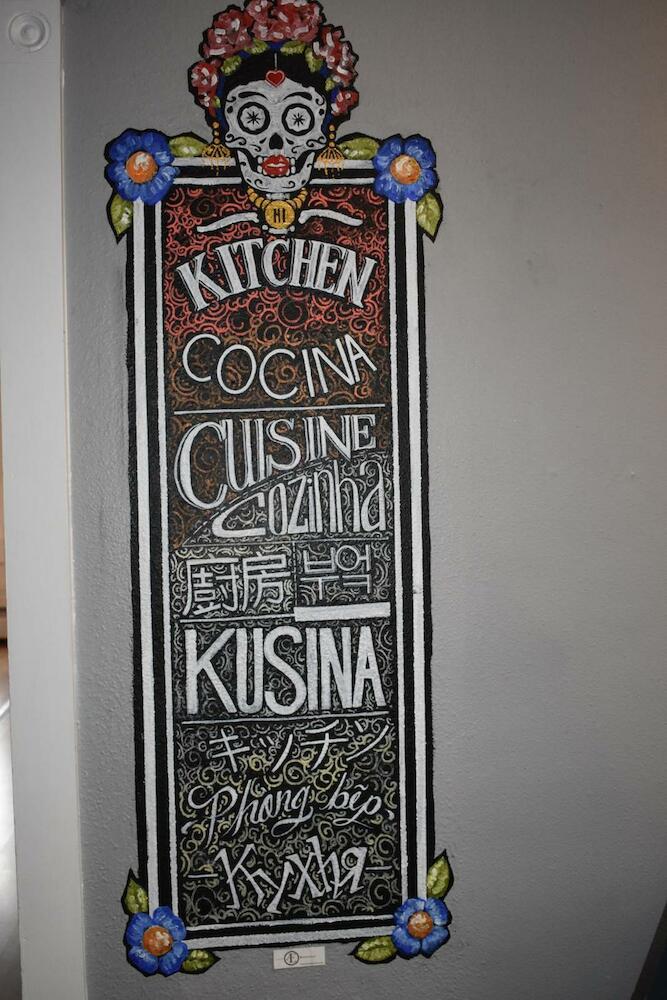 HI
KITCHEN
COCINA
CUISINE
Cozinha
厨房 부엌
KUSINA
キッチツ
Phong bếp
Кухня